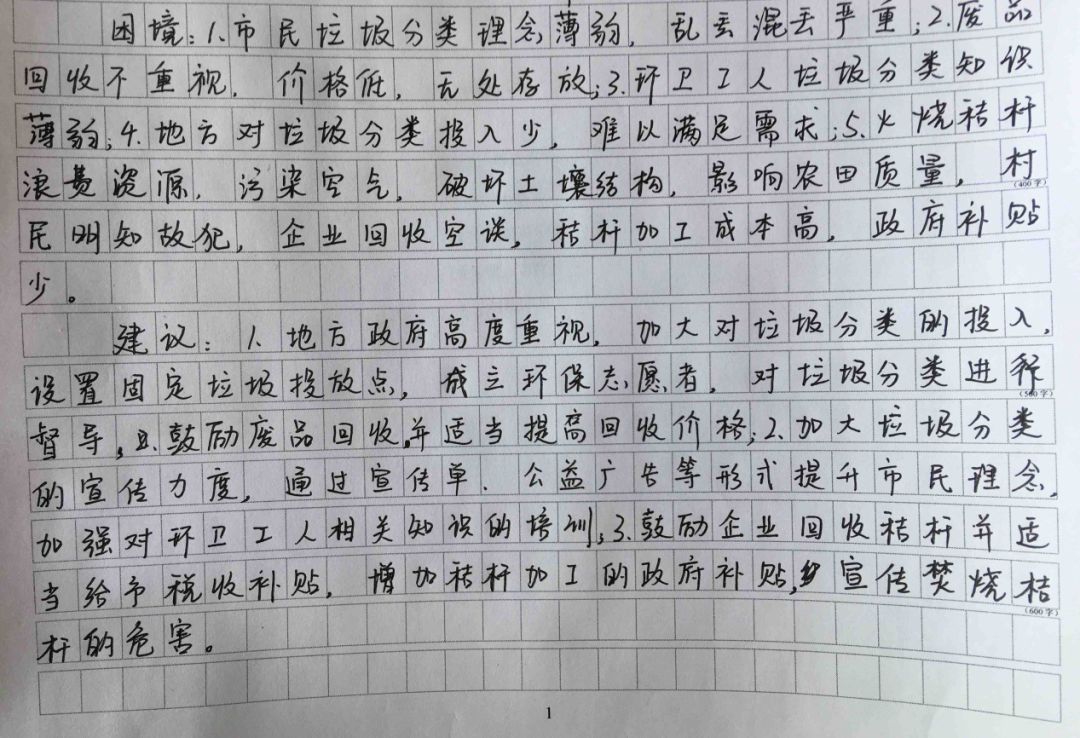 困境:1.市民垃圾分类理念薄弱,乱丢混丢严重;2.废品
回收不重视,价格低,无处存放;3.环卫工人垃圾分类知识
薄弱;4.地方对垃圾分类投入少,难以满足需求;5.火烧秸杆
浪费资源,污染空气,破坏土壤结构,影响农田质量,村
(400字)
民明知故犯,企业回收空谈,秸杆加工成本高,政府补贴
少。
建议:1.地方政府高度重视,加大对垃圾分类的投入,
设置固定垃圾投放点,成立环保志愿者,对垃圾分类进行
(500字)
督导,鼓励废品回收,并适当提高回收价格;2.加大垃圾分类
的宣传力度,通过宣传单、公益广告等形式提升市民理念,
加强对环卫工人相关知识的培训;3.鼓励企业回收秸杆并适
当给予税收补贴,增加秸杆加工的政府补贴,宣传焚烧桔
(600字)
杆的危害。
1